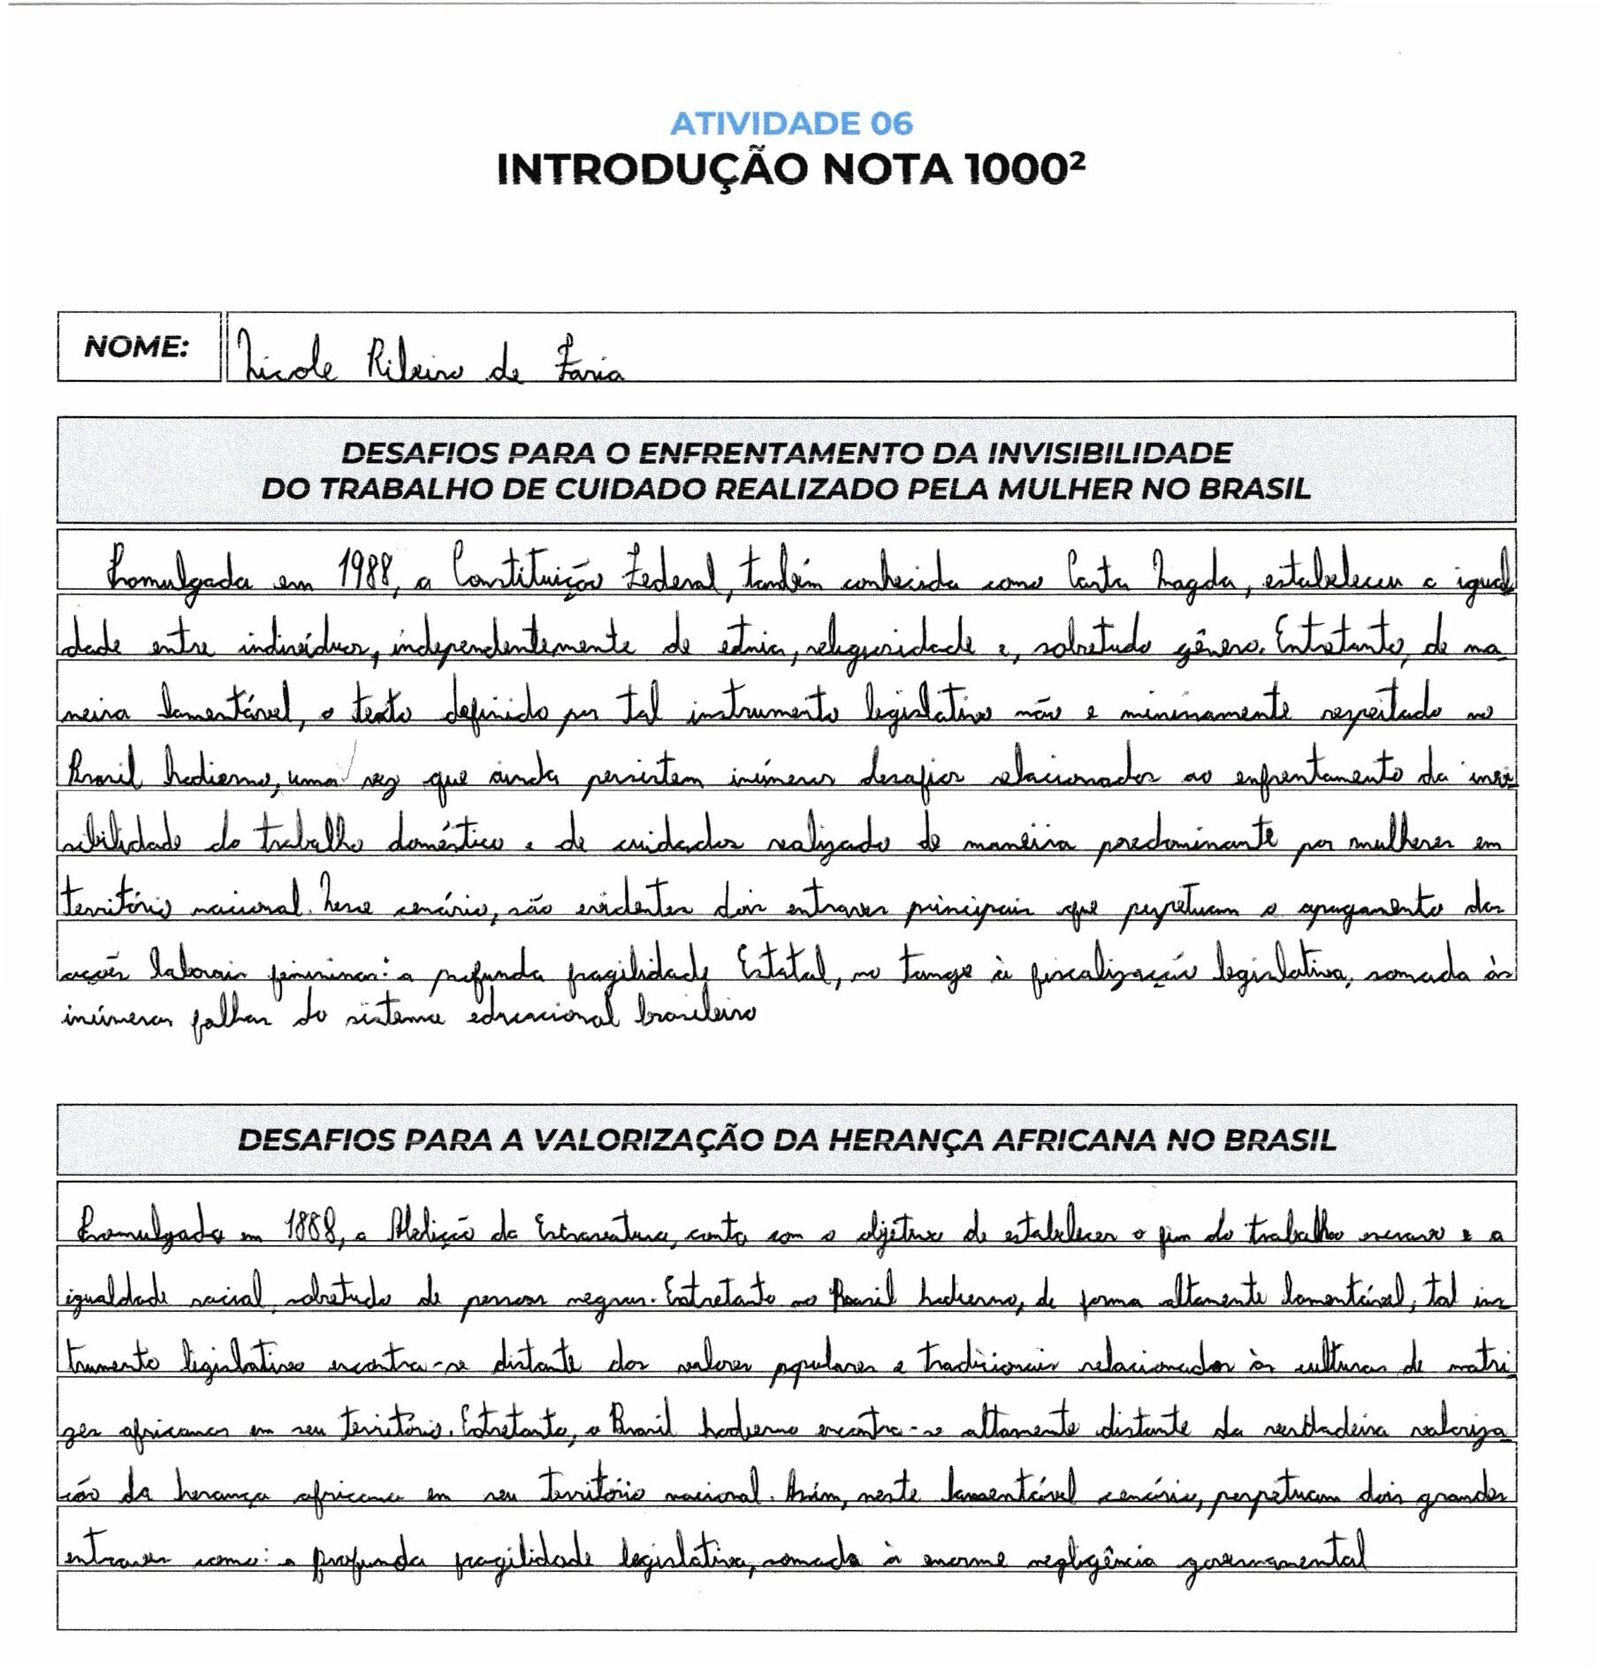 ATIVIDADE 06
INTRODUÇÃO NOTA 1000²
NOME: Nicole Ribeiro de Faria
DESAFIOS PARA O ENFRENTAMENTO DA INVISIBILIDADE
DO TRABALHO DE CUIDADO REALIZADO PELA MULHER NO BRASIL
Promulgada em 1988, a Constituição Federal, também conhecida como Carta Magda, estabeleceu a igual
dade entre indivíduos, independentemente de etnia, religiosidade e, sobretudo gênero. Entretanto, de ma
neira lamentável, o texto definido por tal instrumento legislativo não e minimamente respeitado no
Brasil hodierno, uma vez que ainda persistem inúmeros desafios relacionados ao enfrentamento da invi
sibilidade do trabalho doméstico e de cuidados realizado de maneira predominante por mulheres em
território nacional. Nesse cenário, são evidentes dois entraves principais que perpetuam o apagamento das
acções laborais femininas: a profunda fragilidade Estatal, no tange à fiscalização legislativa, somada às
inúmeras falhas do sistema educacional brasileiro
DESAFIOS PARA A VALORIZAÇÃO DA HERANÇA AFRICANA NO BRASIL
Promulgada em 1888, a Abolição da Escravatura, conta com o objetivo de estabelecer o fim do trabalho escravo e a
igualdade racial, sobretudo de pessoas negras. Entretanto no Brasil hodierno, de forma altamente lamentável, tal ins
trumento legislativo encontra-se distante dos valores populares e tradicionais relacionados às culturas de matri
zes africanas em seu território. Entretanto, o Brasil hodierno encontra-se altamente distante da verdadeira valoriza
ção da herança africana em seu território nacional. Assim, neste lamentável cenário, perpetuam dois grandes
entraves como: a profunda fragilidade legislativa, somada à enorme negligência governamental